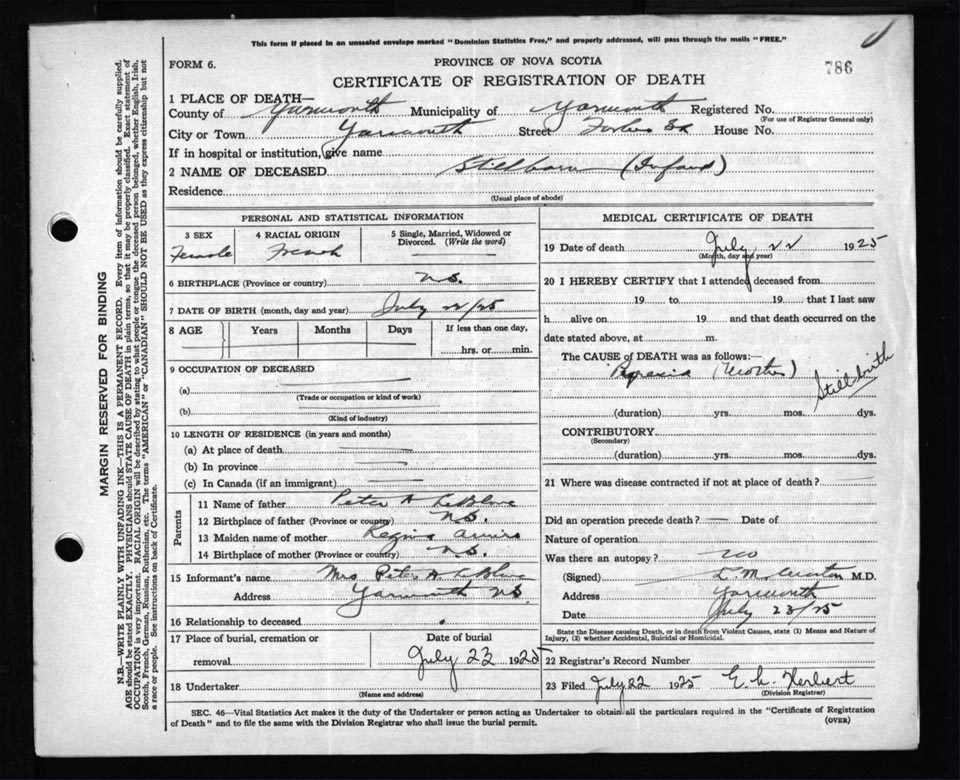 This form if placed in an unsealed envelope marked "Dominion Statistics Free," and properly addressed, will pass through the mails "FREE."
FORM 6.
PROVINCE OF NOVA SCOTIA
786
CERTIFICATE OF REGISTRATION OF DEATH
1 PLACE OF DEATH—
County of Yarmouth Municipality of Yarmouth Registered No.
(For use of Registrar General only)
City or Town Yarmouth Street Forbes St House No.
If in hospital or institution, give name
2 NAME OF DECEASED Stillborn (Infant)
Residence
(Usual place of abode)
PERSONAL AND STATISTICAL INFORMATION
3 SEX 4 RACIAL ORIGIN 5 Single, Married, Widowed or Divorced. (Write the word)
Female French
6 BIRTHPLACE (Province or country) N.S.
7 DATE OF BIRTH (month, day and year) July 22/25
8 AGE Years Months Days If less than one day,
hrs. or min.
9 OCCUPATION OF DECEASED
(a)
(Trade or occupation or kind of work)
(b)
(Kind of industry)
10 LENGTH OF RESIDENCE (in years and months)
(a) At place of death
(b) In province
(c) In Canada (if an immigrant)
Parents
11 Name of father Peter A LeBlanc
12 Birthplace of father (Province or country) N.S.
13 Maiden name of mother Regina
14 Birthplace of mother (Province or country) N.S.
15 Informant's name Mrs Peter A. LeBlanc
Address Yarmouth N.S.
16 Relationship to deceased
17 Place of burial, cremation or removal
Date of burial
July 23 1925
18 Undertaker
(Name and address)
MEDICAL CERTIFICATE OF DEATH
19 Date of death July 22 1925
(Month, day and year)
20 I HEREBY CERTIFY that I attended deceased from
19 to 19 that I last saw
h alive on 19 and that death occurred on the
date stated above, at m.
The CAUSE of DEATH was as follows:—
(Mother) Stillbirth
(duration) yrs. mos. dys.
CONTRIBUTORY
(Secondary)
(duration) yrs. mos. dys.
21 Where was disease contracted if not at place of death?
Did an operation precede death? — Date of
Nature of operation
Was there an autopsy? no
(Signed) M.D.
Address Yarmouth
Date July 23/25
State the Disease causing Death, or in death from Violent Causes, state (1) Means and Nature of
Injury, (2) whether Accidental, Suicidal or Homicidal.
22 Registrar's Record Number
23 Filed July 22 1925 E. h. Herbert
(Division Registrar)
SEC. 46—Vital Statistics Act makes it the duty of the Undertaker or person acting as Undertaker to obtain all the particulars required in the "Certificate of Registration
of Death" and to file the same with the Division Registrar who shall issue the burial permit.
(OVER)
MARGIN RESERVED FOR BINDING
N.B.—WRITE PLAINLY WITH UNFADING INK—THIS IS A PERMANENT RECORD. Every item of information should be carefully supplied.
AGE should be stated EXACTLY. PHYSICIANS should STATE CAUSE OF DEATH in plain terms, so that it may be properly classified. Exact statement of
OCCUPATION is very important. RACIAL ORIGIN will be described by stating to what people or tongue the deceased person belonged, whether English, Irish,
Scotch, French, German, Russian, Ruthenian, etc. The terms "AMERICAN" or "CANADIAN" SHOULD NOT BE USED as they express citizenship but not
a race or people. See instructions on back of Certificate.